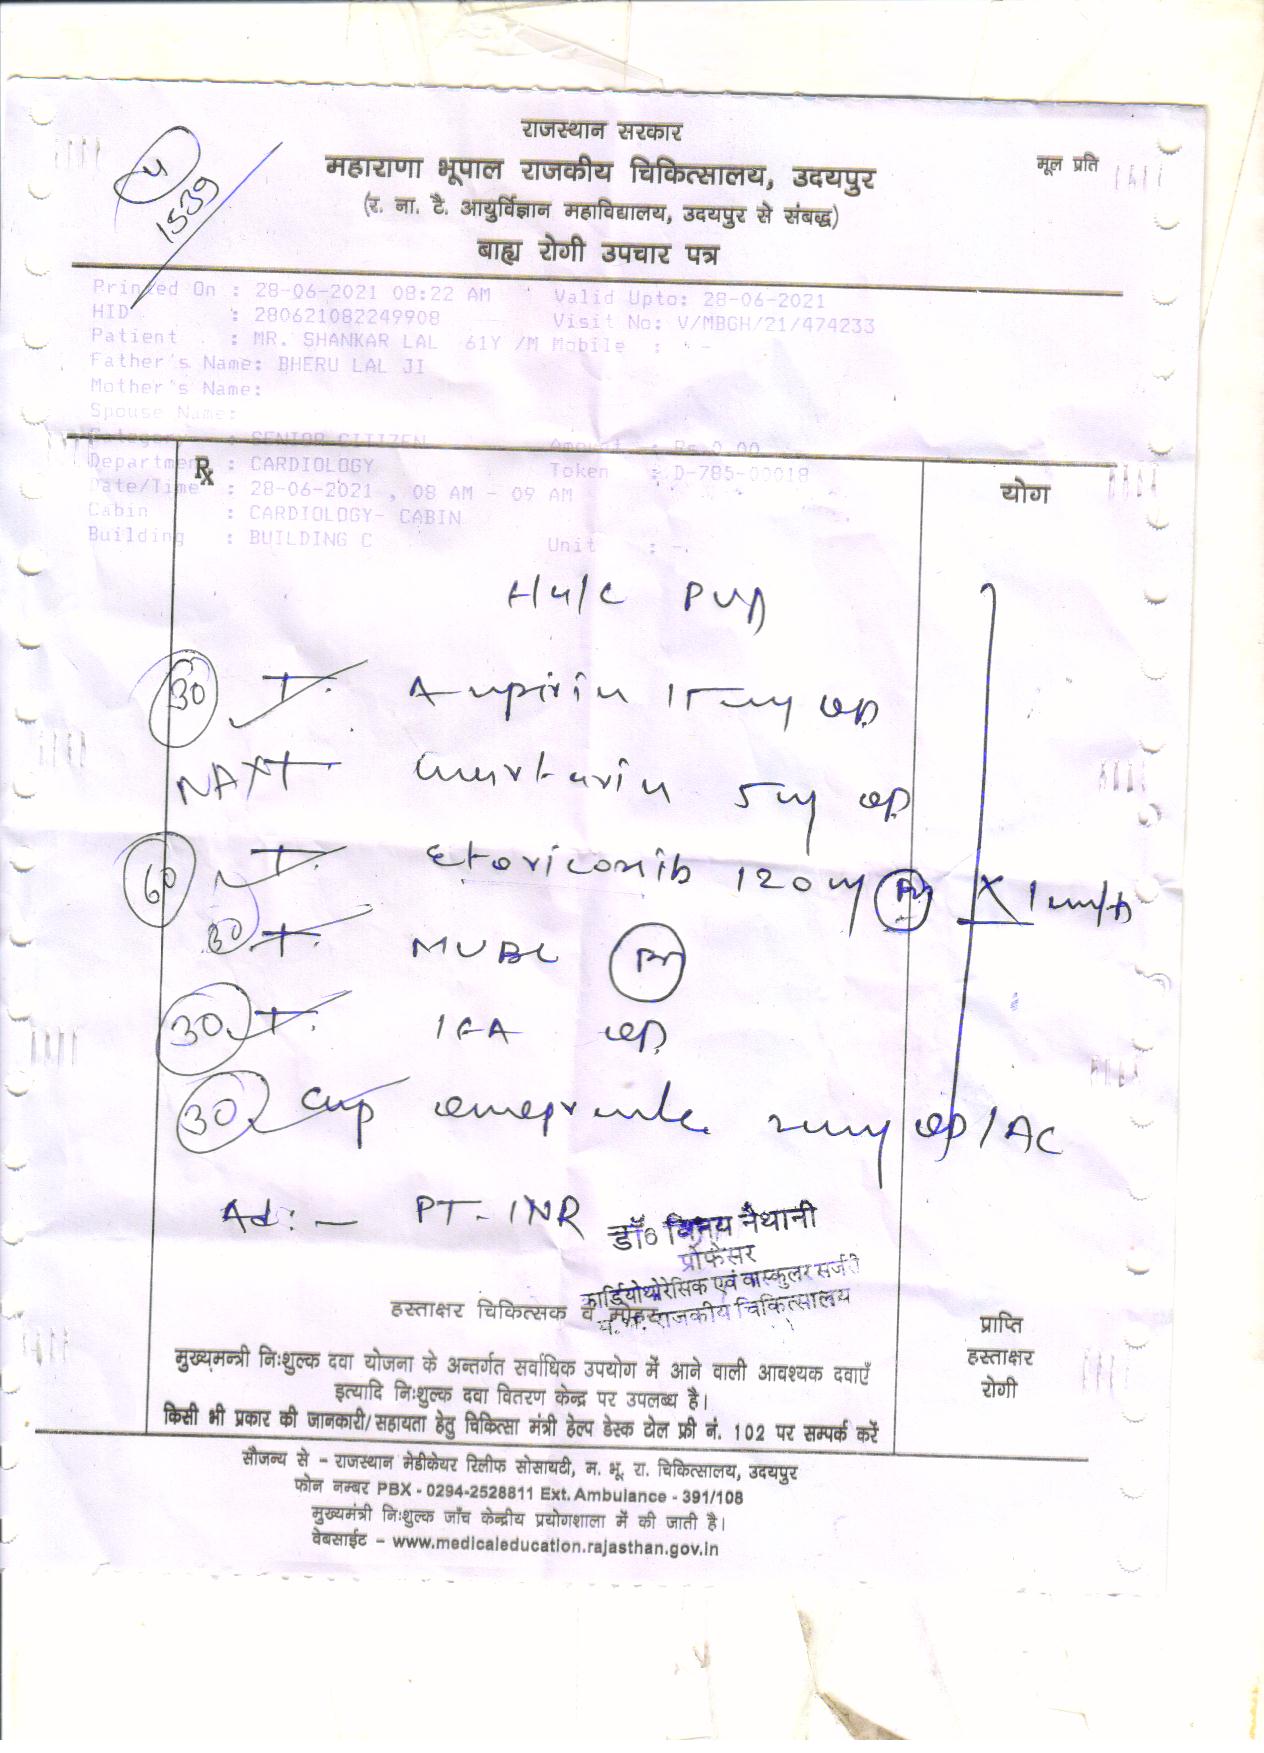 राजस्थान सरकार
महाराणा भूपाल राजकीय चिकित्सालय, उदयपुर
मूल प्रति
(र. ना. टै. आयुर्विज्ञान महाविद्यालय, उदयपुर से संबद्ध)
बाह्य रोगी उपचार पत्र
1539
Printed On : 28-06-2021 08:22 AM Valid Upto: 28-06-2021
HID : 280621082249908 Visit No: V/MBGH/21/474233
Patient : MR. SHANKAR LAL 61Y /M Mobile : -
Father's Name: BHERU LAL JI
Mother's Name:
Spouse Name:
Category : SENIOR CITIZEN Amount : Rs 0.00
Department : CARDIOLOGY Token : D-785-00018
Date/Time : 28-06-2021 , 08 AM - 09 AM
Cabin : CARDIOLOGY- CABIN
Building : BUILDING C Unit : -
Rx योग
H/4/C PVD
30 T. OD
NA T 5mg OD
60 T. Etoricoxib 120
30 T. MVBC
30 T. IFA OD
30 Cap OD / AC
Ad: - PT-INR
डॉ० विनय नैथानी
प्रोफेसर
कार्डियोथोरेसिक एवं वास्कुलर सर्जरी
राजकीय चिकित्सालय
हस्ताक्षर चिकित्सक व मोहर
प्राप्ति
हस्ताक्षर
रोगी
मुख्यमन्त्री निःशुल्क दवा योजना के अन्तर्गत सर्वाधिक उपयोग में आने वाली आवश्यक दवाएँ
इत्यादि निःशुल्क दवा वितरण केन्द्र पर उपलब्ध है।
किसी भी प्रकार की जानकारी/सहायता हेतु चिकित्सा मंत्री हेल्प डेस्क टोल फ्री नं. 102 पर सम्पर्क करें
सौजन्य से - राजस्थान मेडीकेयर रिलीफ सोसायटी, म. भू. रा. चिकित्सालय, उदयपुर
फोन नम्बर PBX - 0294-2528811 Ext. Ambulance - 391/108
मुख्यमंत्री निःशुल्क जाँच केन्द्रीय प्रयोगशाला में की जाती है।
वेबसाईट - www.medicaleducation.rajasthan.gov.in